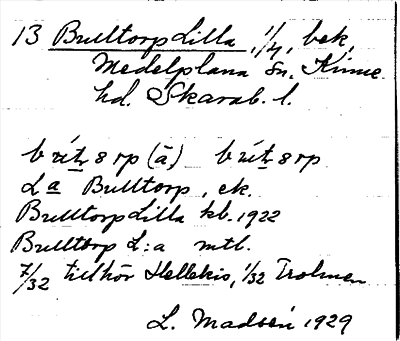 13 Brulltorp Lilla, 1/4, bek,
Medelplana Sn, Kinne
hd. Skarab. l.
La Brulltorp, ek.
Brulltorp Lilla kb. 1922
Brulltorp L:a mtl.
7/32 tillhör Hellekis, 1/32 Trolmen
L. Madsén 1929